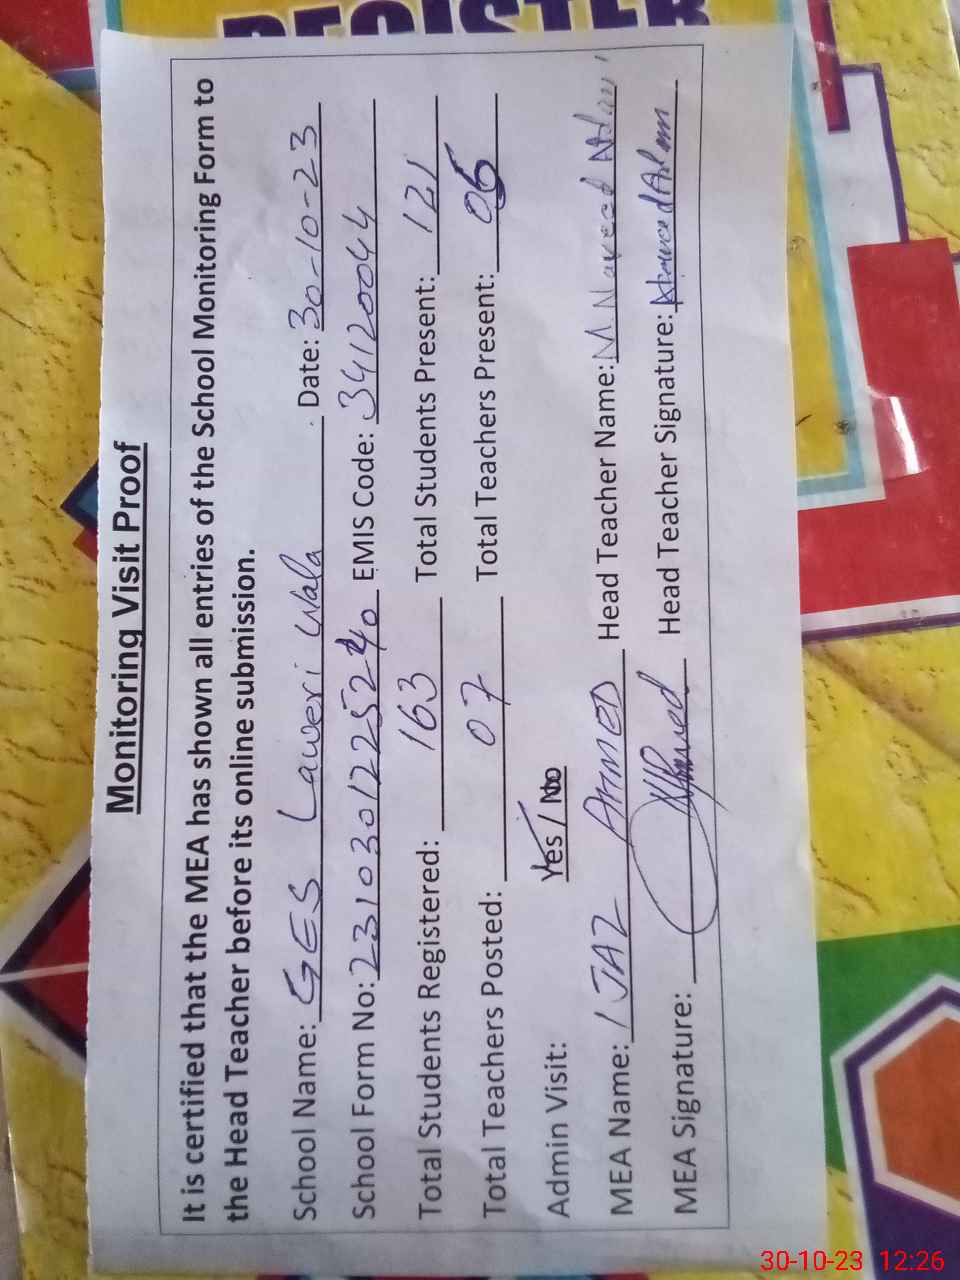 REGISTER
Monitoring Visit Proof
It is certified that the MEA has shown all entries of the School Monitoring Form to
the Head Teacher before its online submission.
School Name: GES Laweri Wala Date: 30-10-23
School Form No: 23103012252240 EMIS Code: 34120044
Total Students Registered: 163 Total Students Present: 121
Total Teachers Posted: 07 Total Teachers Present: 06
Admin Visit: Yes / No
MEA Name: IJAZ AHMED Head Teacher Name: M Naveed
MEA Signature: Ahmed Head Teacher Signature:
30-10-23 12:26